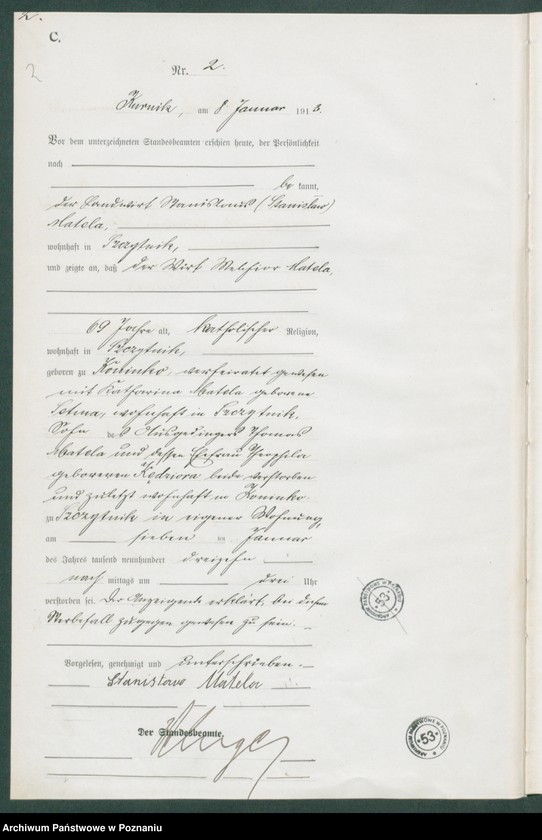 2.
C.
2
Nr. 2.
Kurnik, am 8 Januar 1913.
Vor dem unterzeichneten Standesbeamten erschien heute, der Persönlichkeit
nach
be kannt,
der Landwirt Stanislaus (Stanisław)
Matela,
wohnhaft in Szczytnik,
und zeigte an, daß der Wirt Melchior Matela,
69 Jahre alt, katholischer Religion,
wohnhaft in Szczytnik,
geboren zu Koninko, verheiratet gewesen
mit Katharina Matela geborene
wohnhaft in Szczytnik,
Sohn des Ausgedingers Thomas
Matela und dessen Ehefrau
geborenen Kędziora beide verstorben
und zuletzt wohnhaft in Koninko
zu Szczytnik in eigener Wohnung,
am sieben ten Januar
des Jahres tausend neunhundert dreizehn
nach mittags um drei Uhr
verstorben sei. Der Anzeigende erklärt, bei diesem
Sterbefall zugegen gewesen zu sein.
Vorgelesen, genehmigt und unterschrieben.
Stanisław Matela
Der Standesbeamte.
ARCHIWUM PAŃSTWOWE W POZNANIU
53
ARCHIWUM PAŃSTWOWE W POZNANIU
53
Archiwum Państwowe w Poznaniu